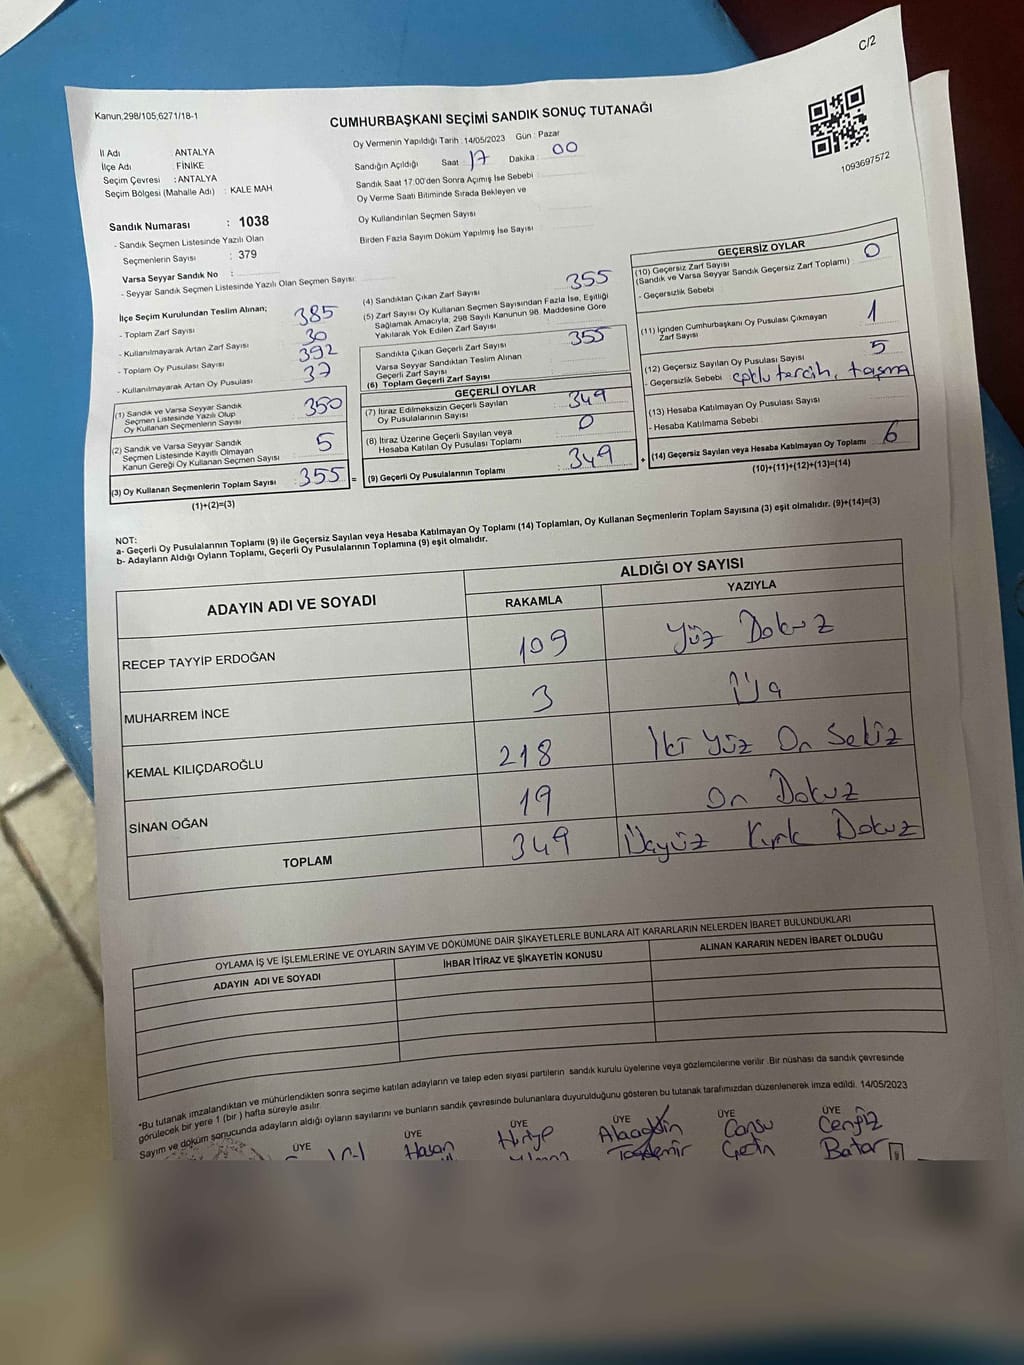 C/2
Kanun,298/105,6271/18-1
CUMHURBAŞKANI SEÇİMİ SANDIK SONUÇ TUTANAĞI
1093697572
İl Adı : ANTALYA
İlçe Adı : FİNİKE
Seçim Çevresi : ANTALYA
Seçim Bölgesi (Mahalle Adı) : KALE MAH
Oy Vermenin Yapıldığı Tarih : 14/05/2023 Gün : Pazar
Sandığın Açıldığı Saat : 17 Dakika : 00
Sandık Saat 17:00'den Sonra Açımış İse Sebebi :
Oy Verme Saati Bitiminde Sırada Bekleyen ve
Oy Kullandırılan Seçmen Sayısı
Birden Fazla Sayım Döküm Yapılmış İse Sayısı
Sandık Numarası : 1038
- Sandık Seçmen Listesinde Yazılı Olan
Seçmenlerin Sayısı : 379
Varsa Seyyar Sandık No :
- Seyyar Sandık Seçmen Listesinde Yazılı Olan Seçmen Sayısı:
İlçe Seçim Kurulundan Teslim Alınan;
- Toplam Zarf Sayısı : 385
- Kullanılmayarak Artan Zarf Sayısı : 30
- Toplam Oy Pusulası Sayısı : 392
- Kullanılmayarak Artan Oy Pusulası : 37
(1) Sandık ve Varsa Seyyar Sandık
Seçmen Listesinde Yazılı Olup
Oy Kullanan Seçmenlerin Sayısı : 350
(2) Sandık ve Varsa Seyyar Sandık
Seçmen Listesinde Kayıtlı Olmayan
Kanun Gereği Oy Kullanan Seçmen Sayısı : 5
(3) Oy Kullanan Seçmenlerin Toplam Sayısı : 355 =
(1)+(2)=(3)
(4) Sandıktan Çıkan Zarf Sayısı : 355
(5) Zarf Sayısı Oy Kullanan Seçmen Sayısından Fazla İse, Eşitliği
Sağlamak Amacıyla, 298 Sayılı Kanunun 98. Maddesine Göre
Yakılarak Yok Edilen Zarf Sayısı
Sandıkta Çıkan Geçerli Zarf Sayısı : 355
Varsa Seyyar Sandıktan Teslim Alınan
Geçerli Zarf Sayısı
(6) Toplam Geçerli Zarf Sayısı
GEÇERLİ OYLAR
(7) İtiraz Edilmeksizin Geçerli Sayılan
Oy Pusulalarının Sayısı : 349
(8) İtiraz Üzerine Geçerli Sayılan veya
Hesaba Katılan Oy Pusulası Toplamı : 0
(9) Geçerli Oy Pusulalarının Toplamı : 349 +
GEÇERSİZ OYLAR
(10) Geçersiz Zarf Sayısı
(Sandık ve Varsa Seyyar Sandık Geçersiz Zarf Toplamı) : 0
- Geçersizlik Sebebi :
(11) İçinden Cumhurbaşkanı Oy Pusulası Çıkmayan
Zarf Sayısı : 1
(12) Geçersiz Sayılan Oy Pusulası Sayısı : 5
- Geçersizlik Sebebi : tercih, taşma
(13) Hesaba Katılmayan Oy Pusulası Sayısı
- Hesaba Katılmama Sebebi :
(14) Geçersiz Sayılan veya Hesaba Katılmayan Oy Toplamı : 6
(10)+(11)+(12)+(13)=(14)
NOT:
a- Geçerli Oy Pusulalarının Toplamı (9) ile Geçersiz Sayılan veya Hesaba Katılmayan Oy Toplamı (14) Toplamları, Oy Kullanan Seçmenlerin Toplam Sayısına (3) eşit olmalıdır. (9)+(14)=(3)
b- Adayların Aldığı Oyların Toplamı, Geçerli Oy Pusulalarının Toplamına (9) eşit olmalıdır.
ADAYIN ADI VE SOYADI
ALDIĞI OY SAYISI
RAKAMLA YAZIYLA
RECEP TAYYİP ERDOĞAN 109 Yüz Dokuz
MUHARREM İNCE 3 Üç
KEMAL KILIÇDAROĞLU 218 İki Yüz On Sekiz
SİNAN OĞAN 19 On Dokuz
TOPLAM 349 Üçyüz Kırk Dokuz
OYLAMA İŞ VE İŞLEMLERİNE VE OYLARIN SAYIM VE DÖKÜMÜNE DAİR ŞİKAYETLERLE BUNLARA AİT KARARLARIN NELERDEN İBARET BULUNDUKLARI
ADAYIN ADI VE SOYADI İHBAR İTİRAZ VE ŞİKAYETİN KONUSU ALINAN KARARIN NEDEN İBARET OLDUĞU
"Bu tutanak imzalandıktan ve mühürlendikten sonra seçime katılan adayların ve talep eden siyasi partilerin sandık kurulu üyelerine veya gözlemcilerine verilir .Bir nüshası da sandık çevresinde
görülecek bir yere 1 (bir ) hafta süreyle asılır.
Sayım ve döküm sonucunda adayların aldığı oyların sayılarını ve bunların sandık çevresinde bulunanlara duyurulduğunu gösteren bu tutanak tarafımızdan düzenlenerek imza edildi. 14/05/2023
ÜYE ÜYE ÜYE ÜYE ÜYE ÜYE
Hasan Hürriye Alaaddin Cansu Cengiz
Taşdemir Çetin Batar